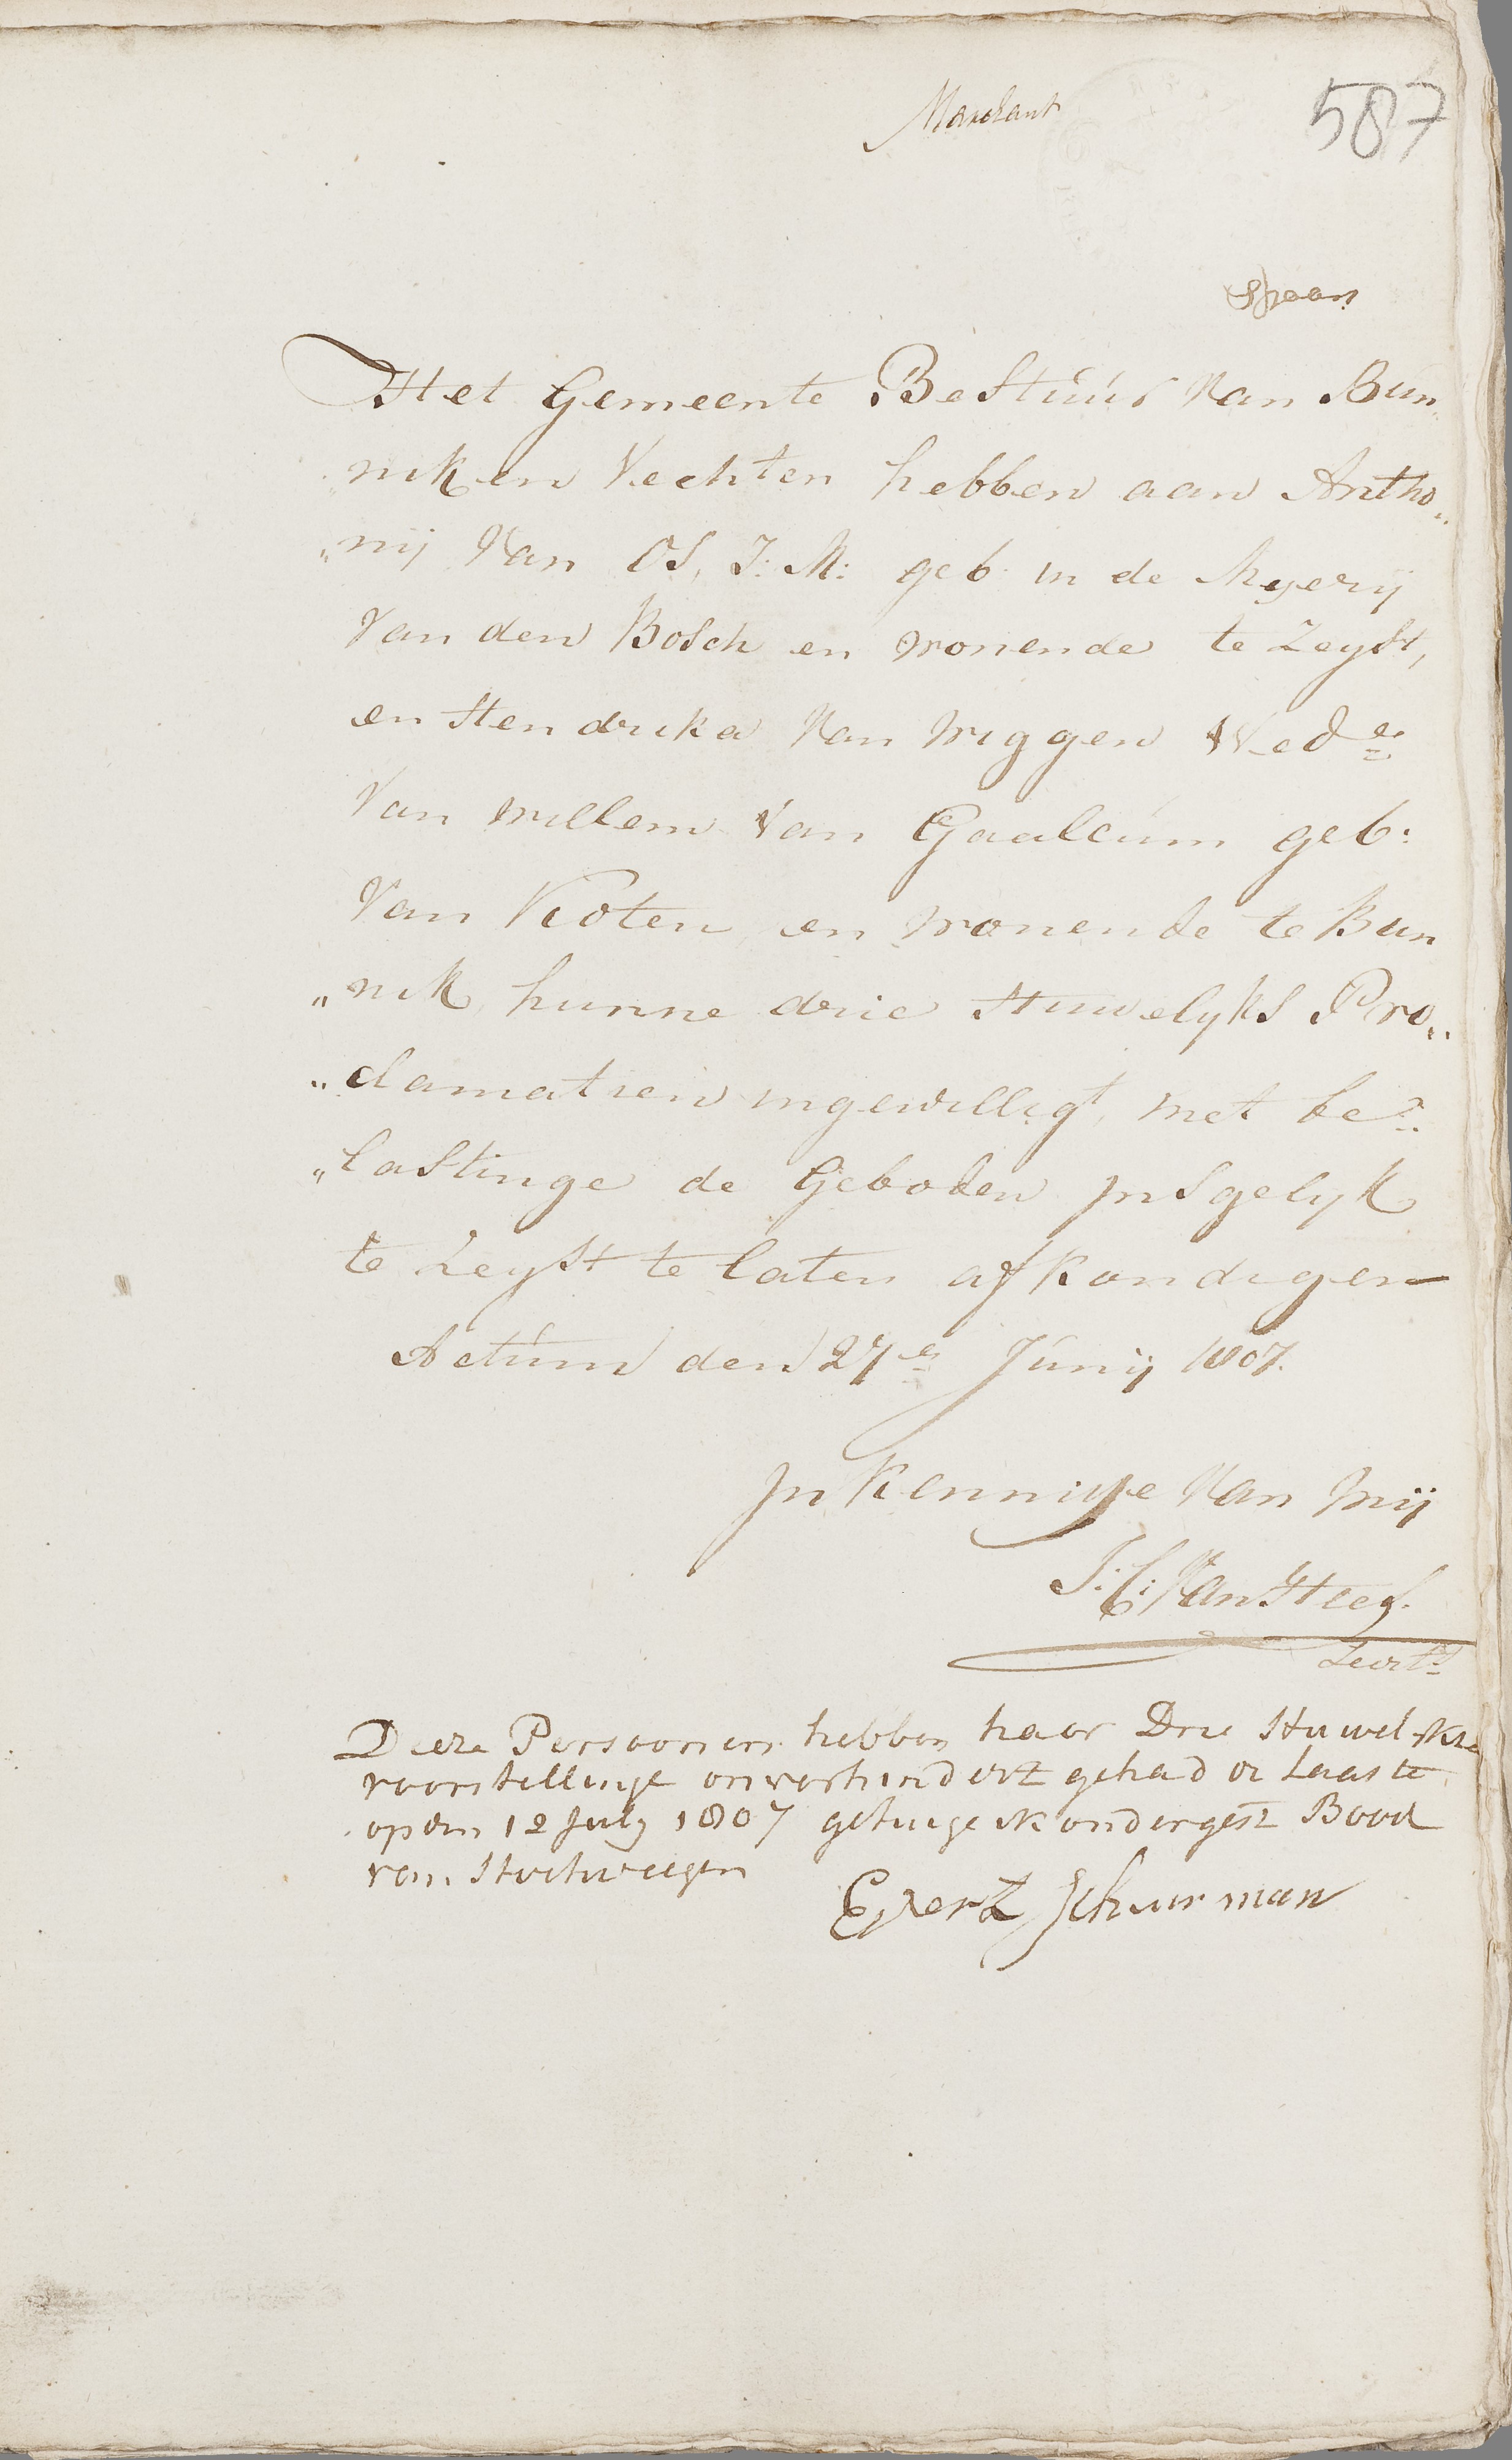 Marchant
587
Spaan
Het Gemeente BeStuur Van Bun„
nik en Vechten hebben aan Antho„
„nij Van OS, J: M: geb: in de Myerij
Van den BoSch en wonende te ZeySt,
en Hendrika Van Wiggen Wed.e
Van Willem Van Gaalcum geb:
Van Vloten en wonende te Bun
„nik hunne drie Huwelyks Pro„
„clamatien ingewilligt, met be„
„laStinge de Geboden InSgelyk
te ZeySt te laten afkondigen
Actum den 27en Junij 1807.
In Kennisse Van Mij
J: C: Van Steeg.
Secrts
Deeze Persoonen hebben haar Drie Huwelykse
voorstellinge onverhindert gehad de Laaste
op den 12 July 1807 getuige ik ondergest Bood
van Stoetweegen
Evert Schuurman